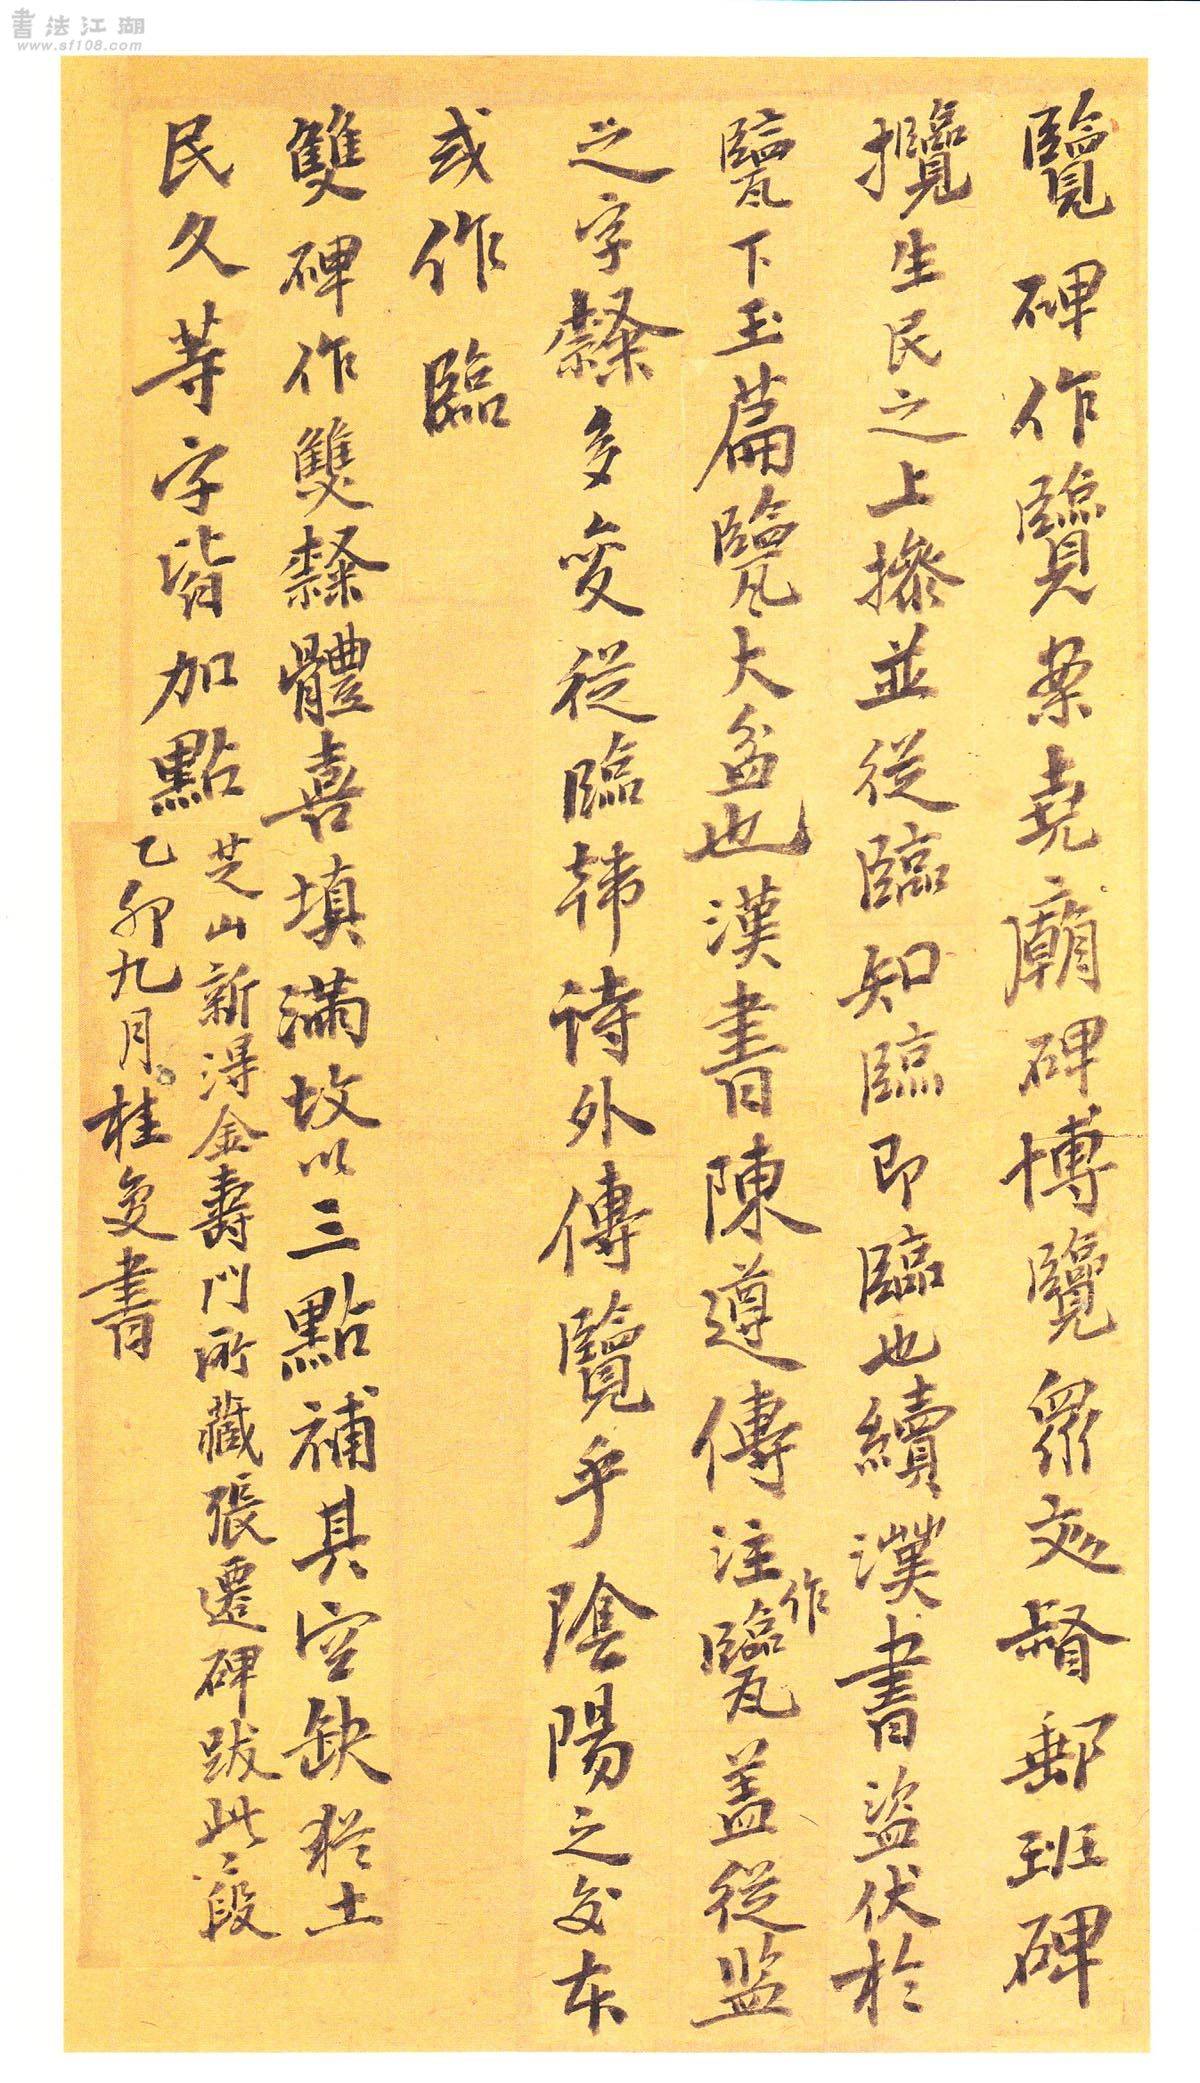 書法江湖
www.sf108.com
覽碑作覽案堯廟碑博覽衆文督郵班碑
攬生民之上並從臨知臨即臨也續漢書盜伏於
㽉下玉篇㽉大盆也漢書陳遵傳注作㽉蓋從監
之字隸多变從臨韓詩外傳覽乎陰陽之交本
或作臨
雙碑作雙隸體喜填滿故以三點補其空缺猶土
民久等字皆加點
芝山新得金壽門所藏張遷碑跋此二段
乙卯九月桂复書